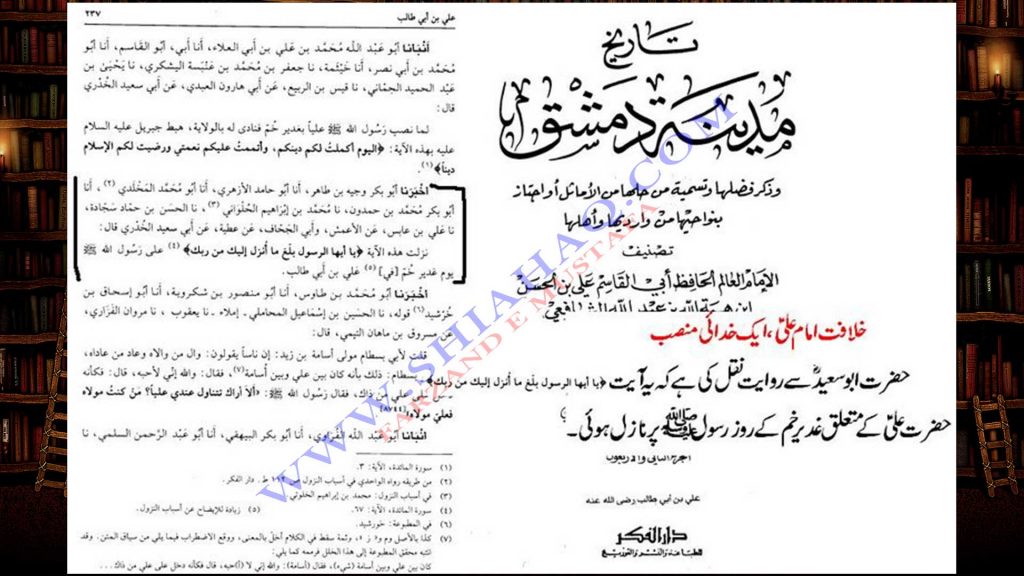 علي بن أبي طالب
٢٣٧
أنبانا أبو عبد الله مُحَمَّد بن عَلي بن أبي العلاء، أنا أبي، أبو القاسم، أنا أبو
مُحَمَّد بن أبي نصر، أنا خَيْثَمة، نا جعفر بن مُحَمَّد بن عَنْبَسة اليشكري، نا يَحْيَىٰ بن
عَبْد الحميد الحِمّاني، نا قيس بن الربيع، عَن أبي هارون العبدي، عَن أبي سعيد الخُدْري
قال:
لما نصب رَسُول الله ﷺ علياً بغدير خُمّ فنادى له بالولاية، هبط جبريل عليه السلام
عليه بهذه الآية: ﴿اليوم أكملتُ لكم دينكم، وأتممتُ عليكم نعمتي ورضيت لكم الإسلام
ديناً﴾(١).
أخْبَرَنا أبو بكر وجيه بن طاهر، أنا أبو حامد الأزهري، أنا أبو مُحَمَّد المَخْلَدي(٢)، أنا
أبو بكر مُحَمَّد بن حمدون، نا مُحَمَّد بن إبْرَاهيم الحُلْوَاني(٣)، نا الحسن بن حمّاد سَجّادة،
نا عَلي بن عابس، عَن الأعمش، وأبي الجَحّاف، عَن عطية، عَن أبي سعيد الخُدْري قال:
نزلت هذه الآية ﴿يا أيها الرسول بلّغ ما أُنزل إليك من ربك﴾(٤) على رَسُول الله ﷺ
يوم غدير خُمّ [في](٥) عَلي بن أبي طالب.
أخْبَرَنا أبو مُحَمَّد بن طاوس، أنا أبو منصور بن شكروية، أنا أبو إسحاق بن
خُرّشيد(٦) قوله، نا الحسَين بن إسْمَاعيل المحاملي ـ إملاء ـ نا يعقوب، نا مروان الفَزَاري،
عَن مسروق بن ماهان التيمي، قال:
قلت لأبي بسطام مولى أسامة بن زيد: إن ناساً يقولون: وال من والاه وعاد من عاداه،
بسطام: ذلك بأنه كان بين علي وبين أسامة(٧)، فقال: والله إني لأحبه، قال: فكأنه
على علي من ذاك، فقال رَسُول الله ﷺ: «ألا أراك تتناول عندي علياً؟ مَنْ كنتُ مولاه
فعليّ مولاه»[٨٧٤٤].
أنبانا أبو عَبْد الله الفُرَاوي، أنا أبو بكر البيهقي، أنا أبو عَبْد الرَّحمن السلمي، نا
(١) سورة المائدة، الآية: ٣.
(٢) من طريقه رواه الواحدي في أسباب النزول ص ١١٢ ط. دار الفكر.
(٣) في أسباب النزول: محمد بن إبراهيم الخلوتي.
(٤) سورة المائدة، الآية: ٦٧.
(٥) زيادة للإيضاح عن أسباب النزول.
(٦) في المطبوعة: خورشيد.
(٧) كذا بالأصل وم و«ز»، وثمة سقط في الكلام أخلّ بالمعنى، ووقع الاضطراب فيما يلي من سياق المتن. وقد
انتبه محقق المطبوعة إلى هذا الخلل فرممه كما يلي:
كان بين علي وبين أسامة (شيء)، فقال (أسامة): والله إني لا (أ)حبه، قال: فكأنه دخل على علي من ذاك...
تاريخ
مدينة دمشق
وذكر فضلها وتسمية من حلها من الأماثل أو اجتاز
بنواحيها من وارديها وأهلها
تصنيف
الإمام العالم الحافظ أبي القاسم علي بن الحسن
ابن هبة الله بن عبد الله الشافعي
خلافت امام علیؑ، ایک خدائی منصب
حضرت ابو سعیدؓ سے روایت نقل کی ہے کہ یہ آیت ﴿يا أيها الرسول بلّغ ما أُنزل إليك من ربك﴾
حضرت علیؑ کے متعلق غدیر خم کے روز رسول ﷺ پر نازل ہوئی۔
الجزء الثاني والأربعون
علي بن أبي طالب رضي الله عنه
دار الفكر
للطباعة والنشر والتوزيع
WWW.SHIAHAQ.COM
FARZAND E MUSTAFA